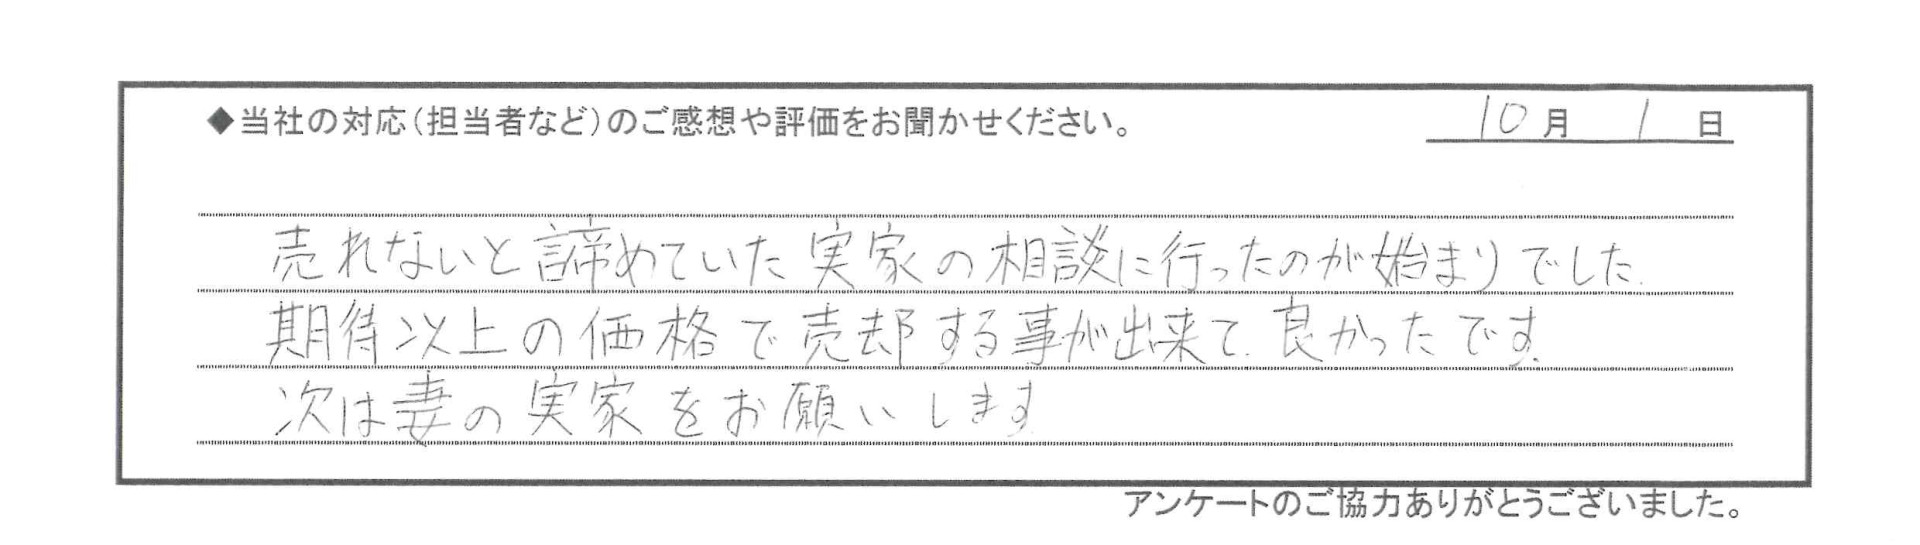 ◆当社の対応(担当者など)のご感想や評価をお聞かせください。 10月 1日
売れないと諦めていた実家の相談に行ったのが始まりでした.
期待以上の価格で売却する事が出来て.良かったです.
次は妻の実家をお願いします
アンケートのご協力ありがとうございました。